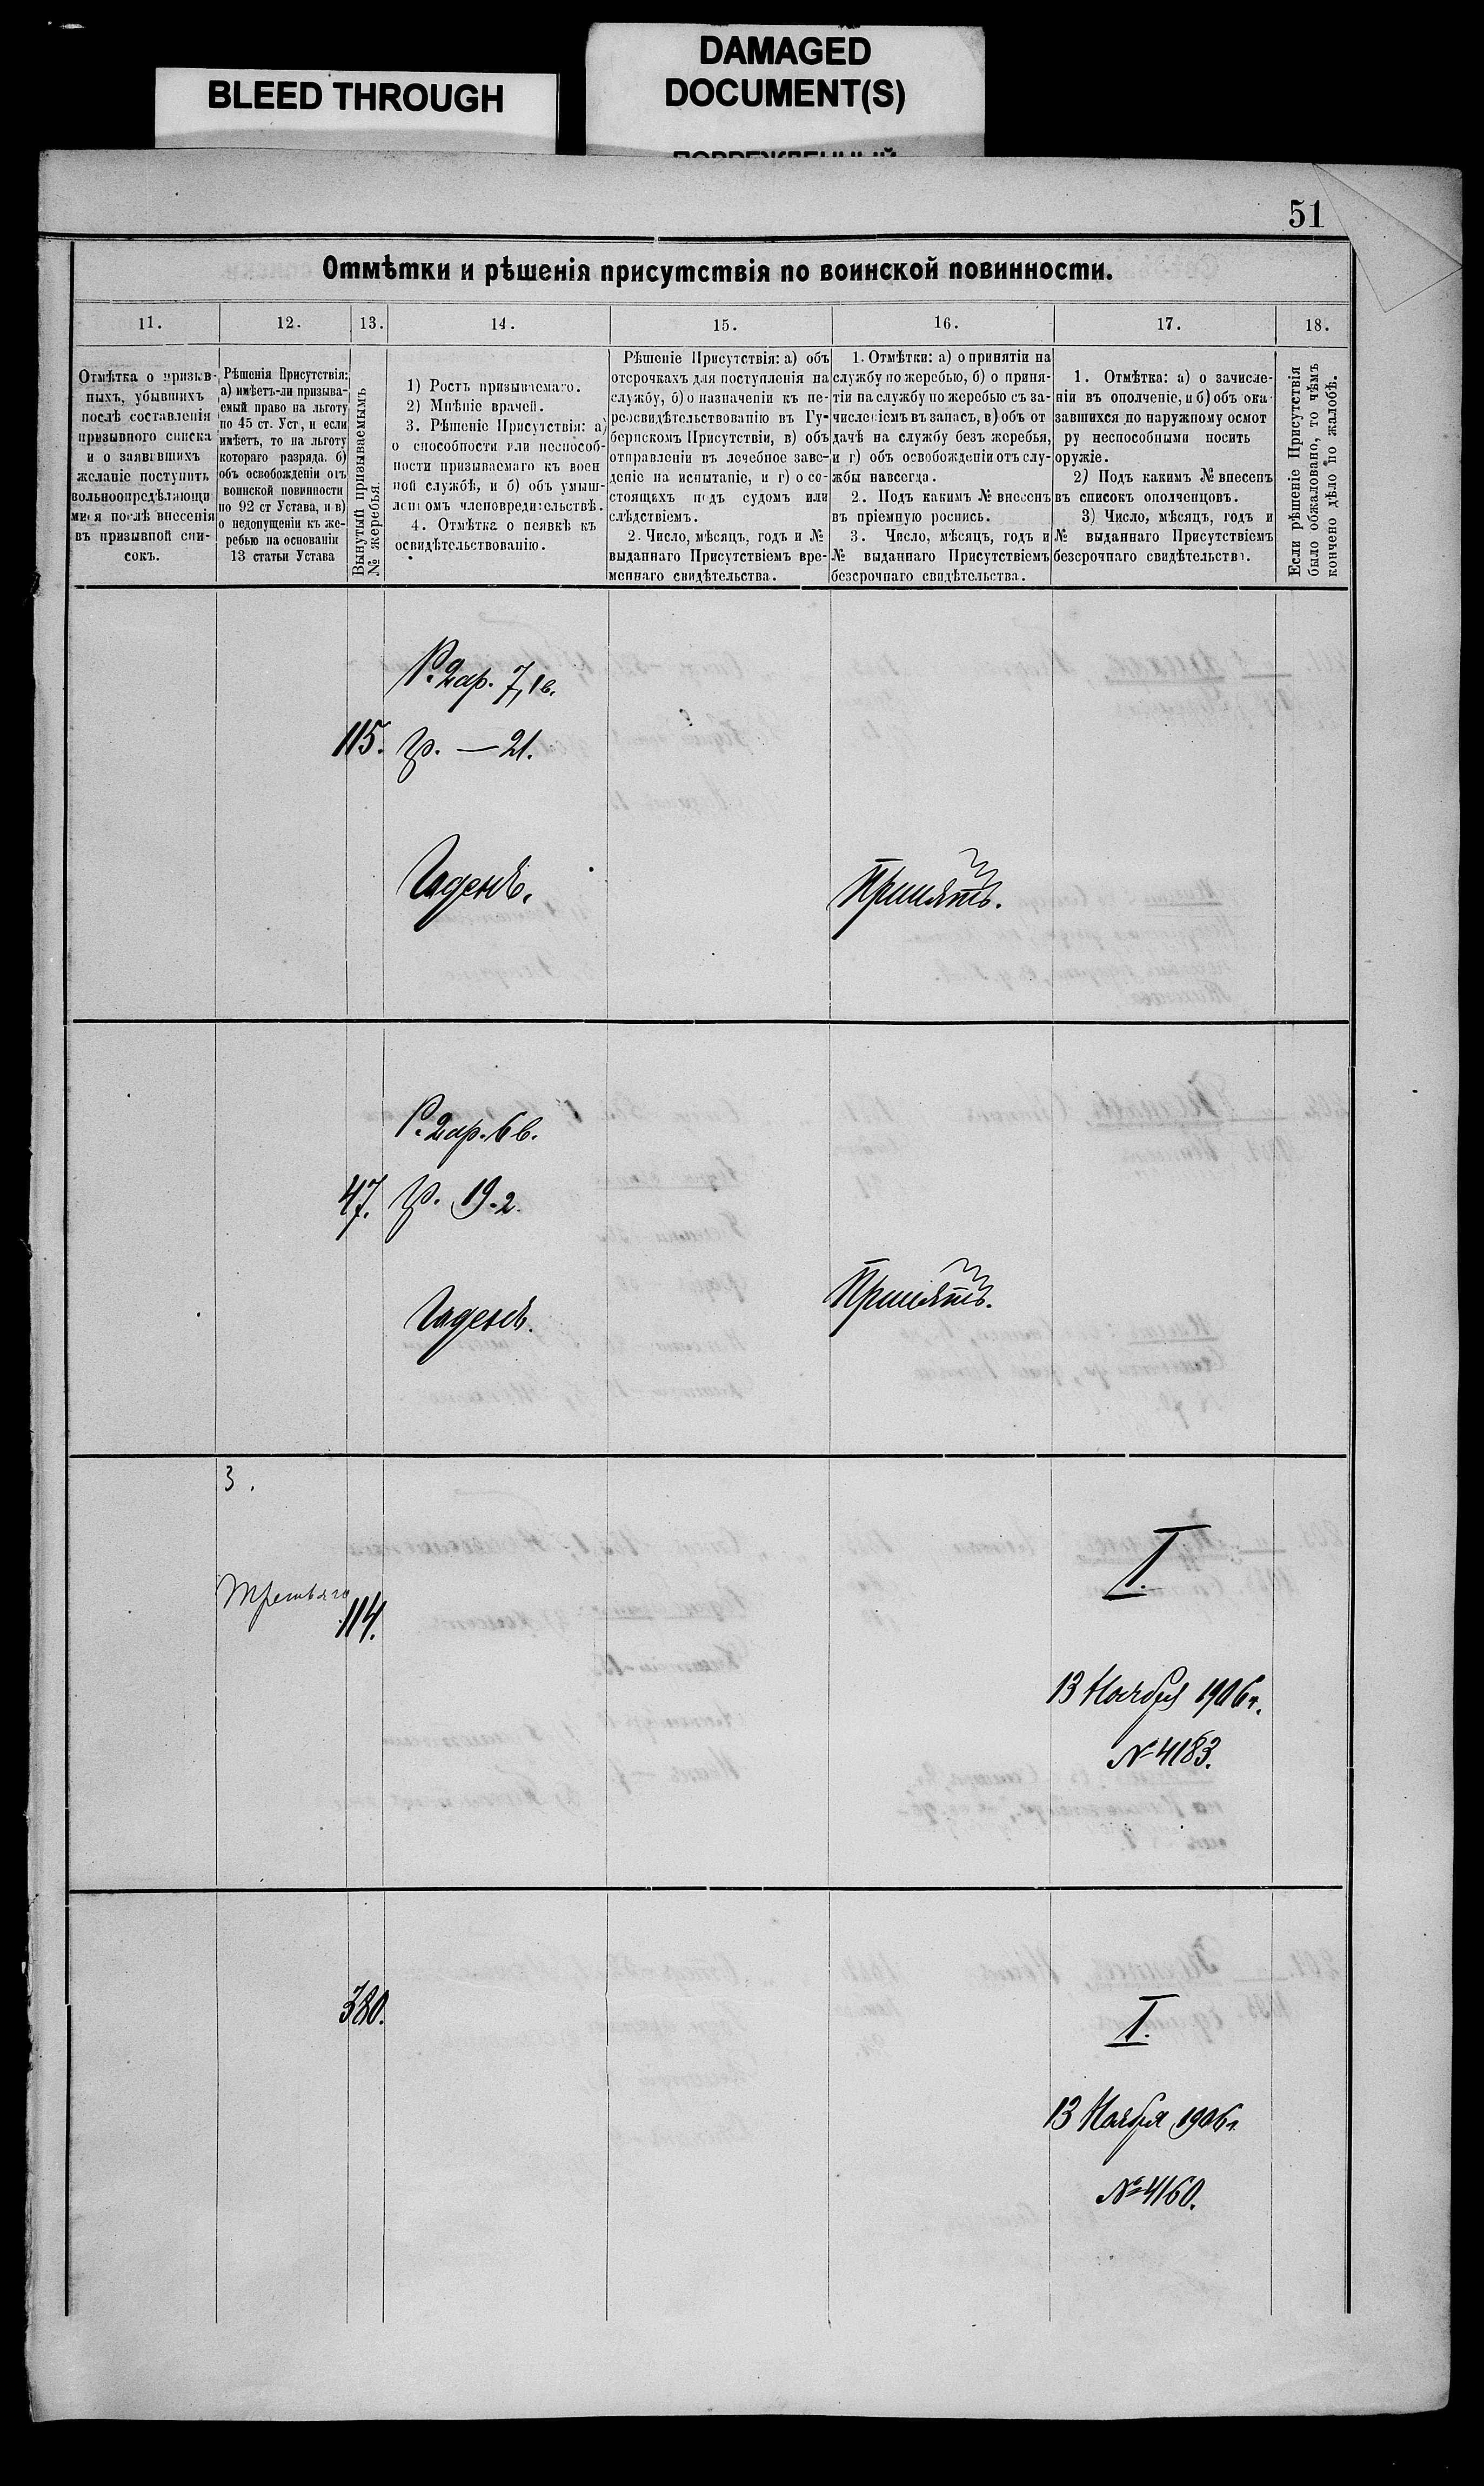 BLEED THROUGH
DAMAGED
DOCUMENT(S)
51
Отмѣтки и рѣшенія присутствія по воинской повинности.
11.
12.
13.
14.
15.
16.
17.
18.
Отмѣтка о призыв-
ныхъ, убывшихъ
послѣ составленія
призывного списка
и о заявившихъ
желаніе поступить
вольноопредѣляющи
мися послѣ внесенія
въ призывной спи-
сокъ.
Рѣшенія Присутствія:
а) имѣетъ-ли призыва-
емый право на льготу
по 45 ст. Уст, и если
имѣетъ, то на льготу
котораго разряда. б)
объ освобожденіи отъ
воинской повинности
по 92 ст Устава, и в)
о недопущеніи къ же-
ребью на основаніи
13 статьи Устава
Вынутый призываемымъ
№ жеребья.
1) Ростъ призываемаго.
2) Мнѣніе врачей.
3. Рѣшеніе Присутствія: а)
о способности или неспособ-
ности призываемаго къ воен
ной службѣ, и б) объ умыш-
ленномъ членовредительствѣ.
4. Отмѣтка о неявкѣ къ
освидѣтельствованію.
Рѣшеніе Присутствія: а) объ
отсрочкахъ для поступленія на
службу, б) о назначеніи къ пе-
реосвидѣтельствованію въ Гу-
бернскомъ Присутствіи, в) объ
отправленіи въ лечебное заве-
деніе на испытаніе, и г) о со-
стоящихъ подъ судомъ или
слѣдствіемъ.
2. Число, мѣсяцъ, годъ и №
выданнаго Присутствіемъ вре-
меннаго свидѣтельства.
1. Отмѣтки: а) о принятіи на
службу по жеребью, б) о приня-
тіи на службу по жеребью съ за-
численіемъ въ запасъ, в) объ от
дачѣ на службу безъ жеребья,
и г) объ освобожденіи отъ слу-
жбы навсегда.
2. Подъ какимъ № внесенъ
въ пріемную роспись.
3. Число, мѣсяцъ, годъ и
№ выданнаго Присутствіемъ
безсрочнаго свидѣтельства.
1. Отмѣтка: а) о зачисле-
ніи въ ополченіе, и б) объ ока-
завшихся по наружному осмот
ру неспособными носить
оружіе.
2) Подъ какимъ № внесенъ
въ списокъ ополченцовъ.
3) Число, мѣсяцъ, годъ и
№ выданнаго Присутствіемъ
безсрочнаго свидѣтельства.
Если рѣшеніе Присутствія
было обжаловано, то чѣмъ
кончено дѣло по жалобѣ.
Р. 2 ар. 7,1 в.
115. гр. — 21.
Годенъ.
Принятъ.
Р. 2 ар. 6 в.
47. гр. 19.2
Годенъ.
Принятъ.
3.
Третьяго
114.
I.
13 Ноября 1906 г.
№ 4183.
380.
I.
13 Ноября 1906 г
№ 4160.